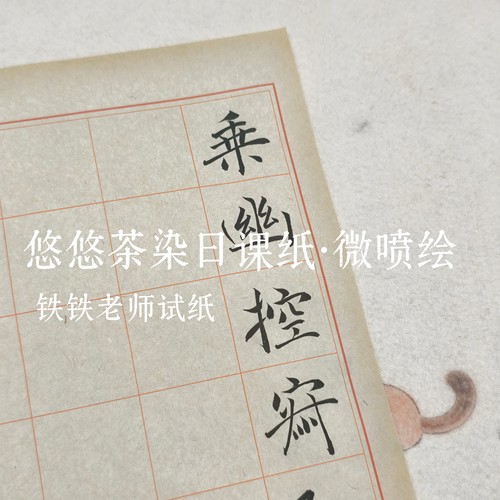 乘幽控寂
悠悠茶染日课纸·微喷绘
铁铁老师试纸